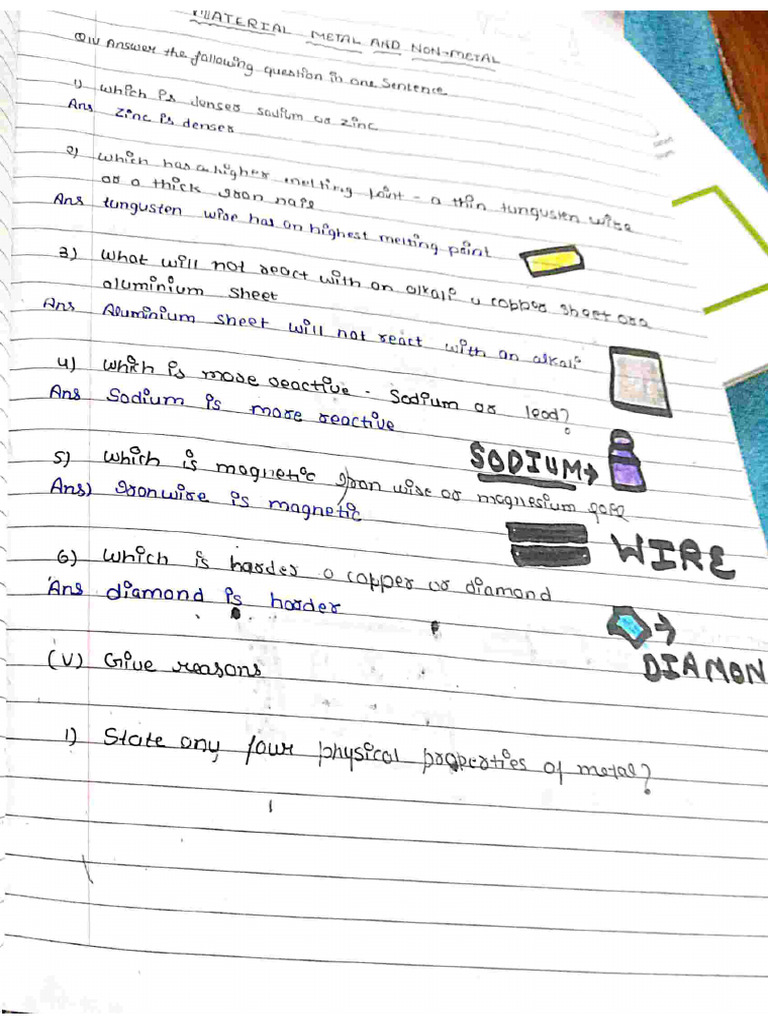 MATERIAL METAL AND NON-METAL
QIV Answer the following question in one sentence
1) which is denser sodium or zinc
Ans Zinc is denser
2) which has a higher melting point - a thin tungusten wire
or a thick iron nafe
Ans tungusten wire has an highest melting point
3) What will not react with an alkali u copper sheet or a
aluminium sheet
Ans Aluminium sheet will not react with an alkali
4) which is more reactive - Sodium or lead?
Ans Sodium is more reactive
SODIUM→
5) which is magnetic Iron wire or magnesium
Ans) Ironwire is magnetic
WIRE
6) which is harder o copper or diamond
Ans diamond is harder
→
DIAMON
(V) Give reasons
1) State any four physical properties of metal?